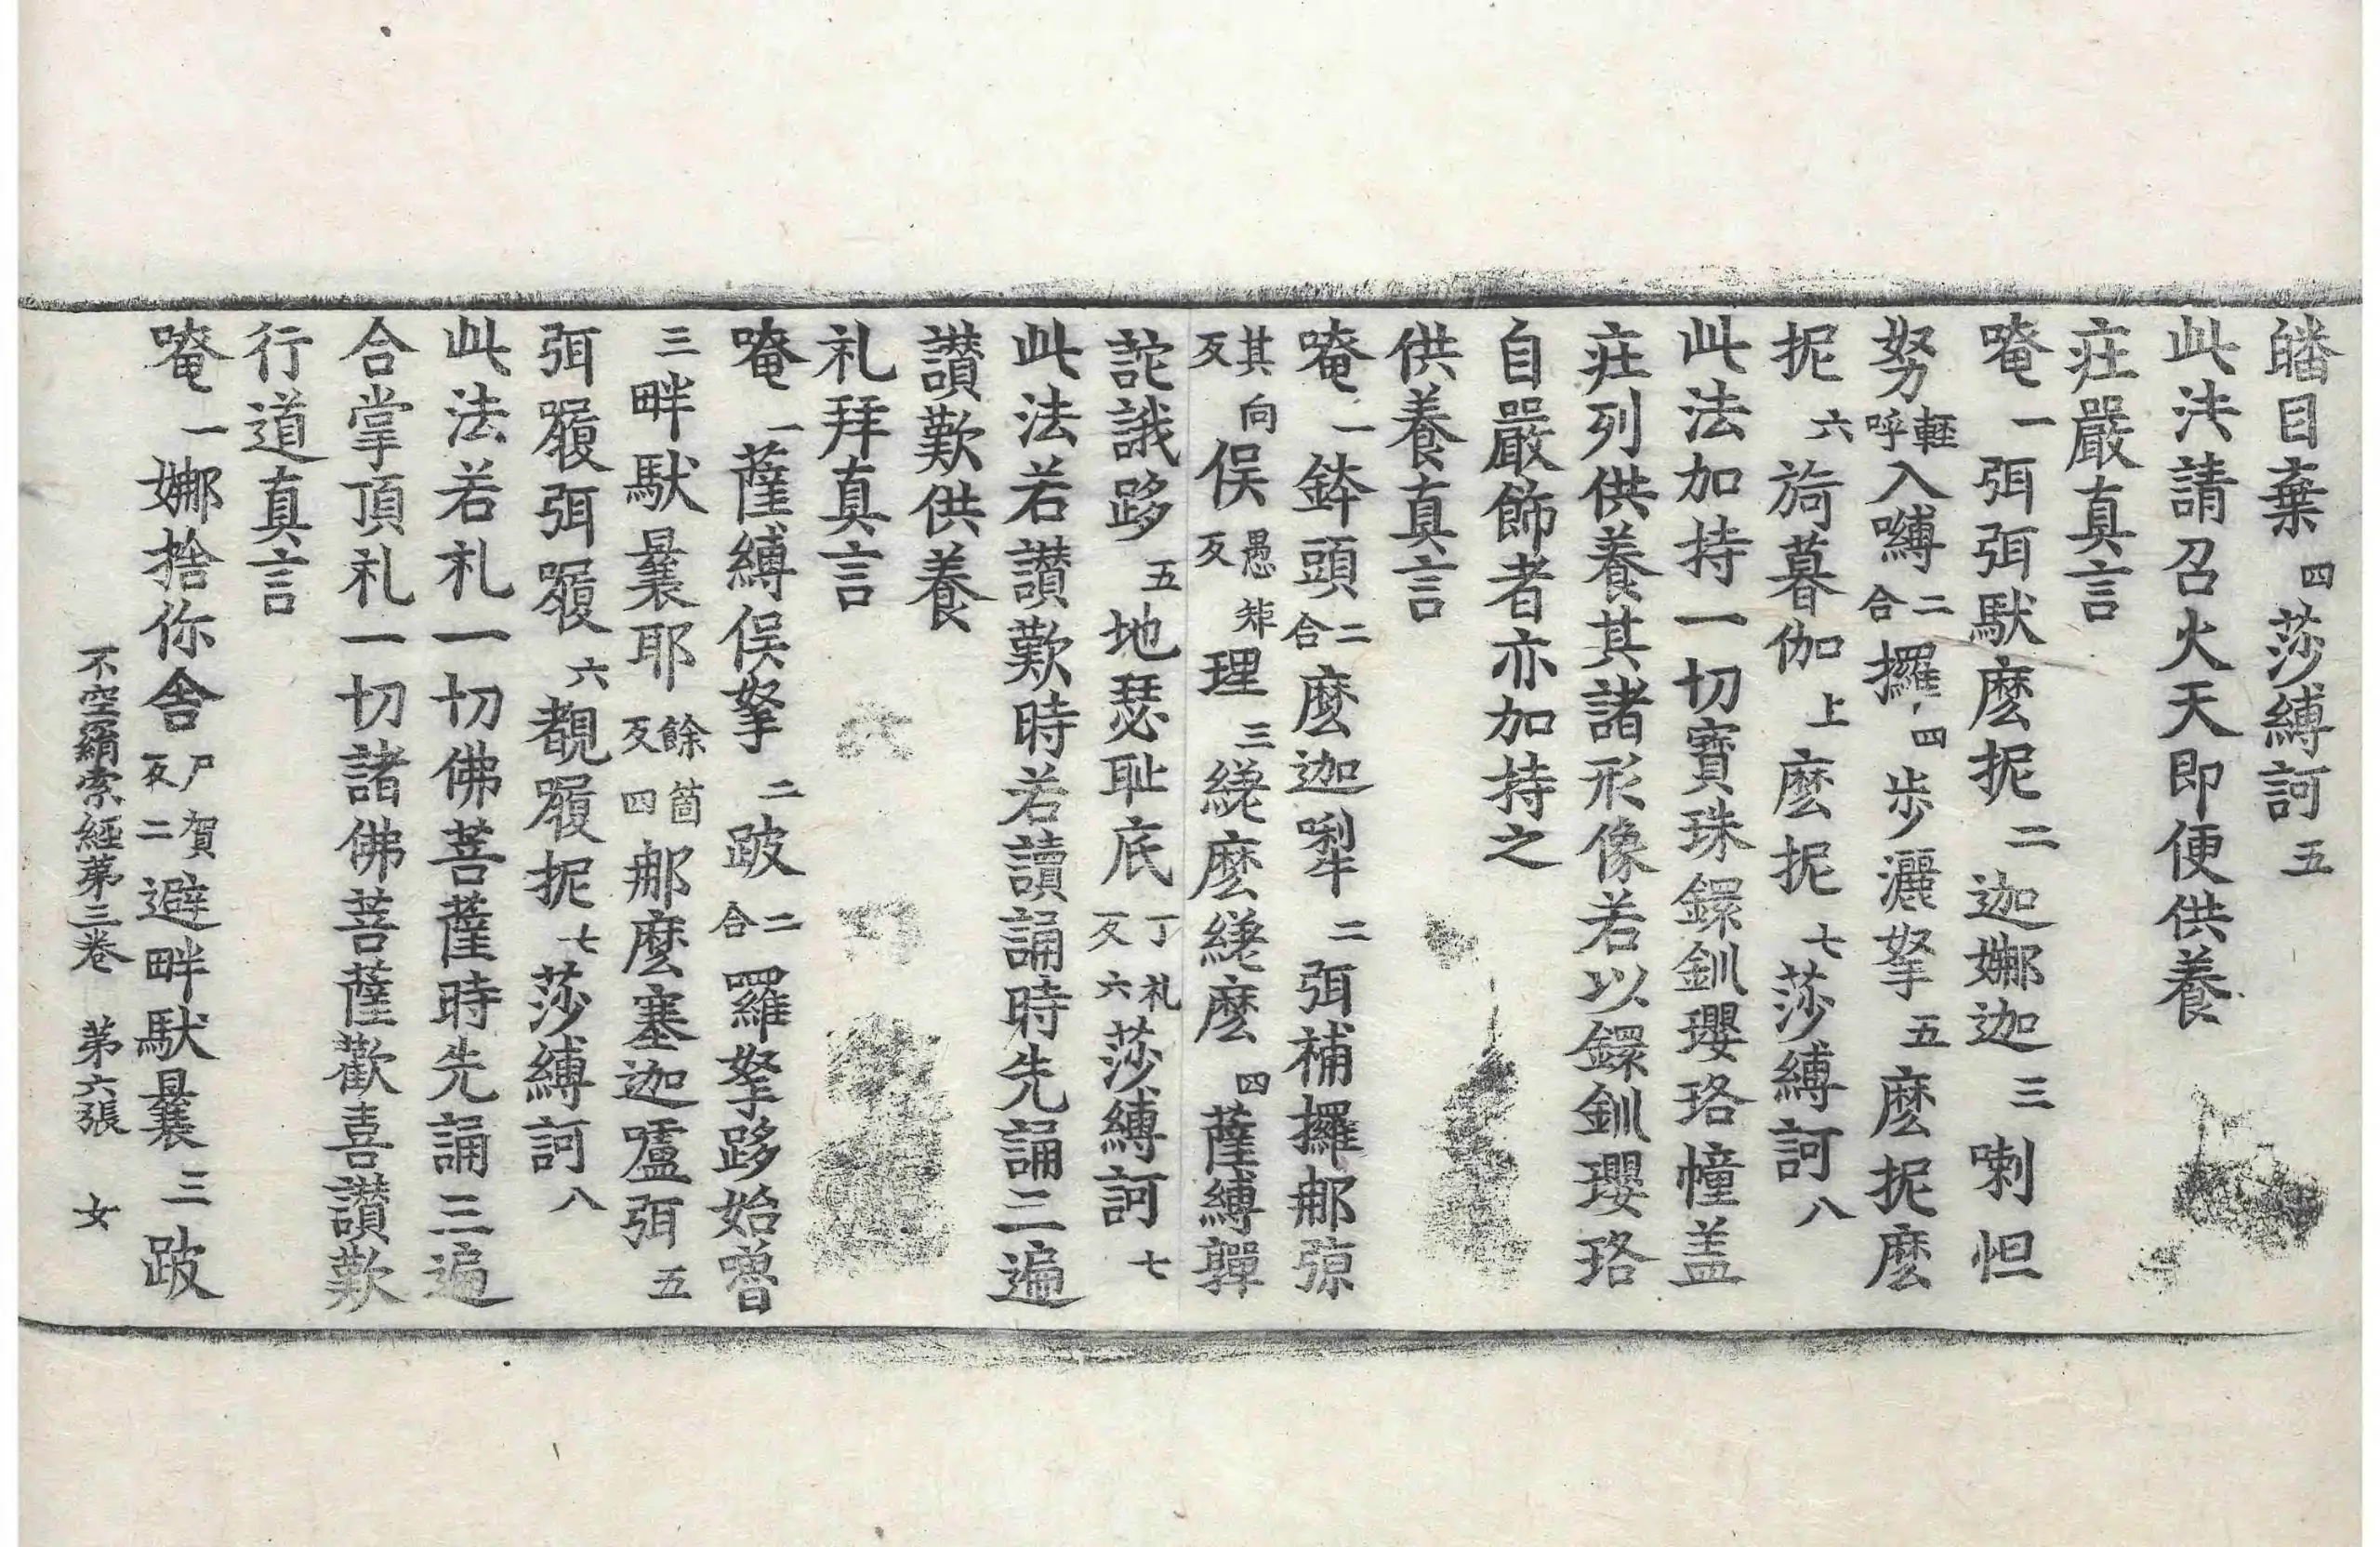 皤目棄四莎縛訶五
此法請召火天即便供養
莊嚴真言
唵一弭弭馱麼抳二迦娜迦三喇怛
努輕呼入嚩二合攞四步灑拏五麼抳麼
抳六旖暮伽上麼抳七莎縛訶八
此法加持一切寶珠鐶釧瓔珞幢盖
莊列供養其諸形像若以鐶釧瓔珞
自嚴飾者亦加持之
供養真言
唵一鉢頭二合麼迦㘑二弭補攞郍弶
其向反俁愚矩反理三繞麼繞麼四薩縛嚲
詑誐跢五地瑟耻底丁礼反六莎縛訶七
此法若讃歎時若讀誦時先誦三遍
讃歎供養
礼拜真言
唵一薩縛俁拏二跛二合羅拏跢始嚕
三畔馱曩耶餘箇反四郍麼塞迦嚧弭五
弭履弭履六覩履抳七莎縛訶八
此法若礼一切佛菩薩時先誦三遍
合掌頂礼一切諸佛菩薩歡喜讃歎
行道真言
唵一娜捨你舍尸賀反二避畔馱曩三跛
不空羂索經第三卷 第六張 女